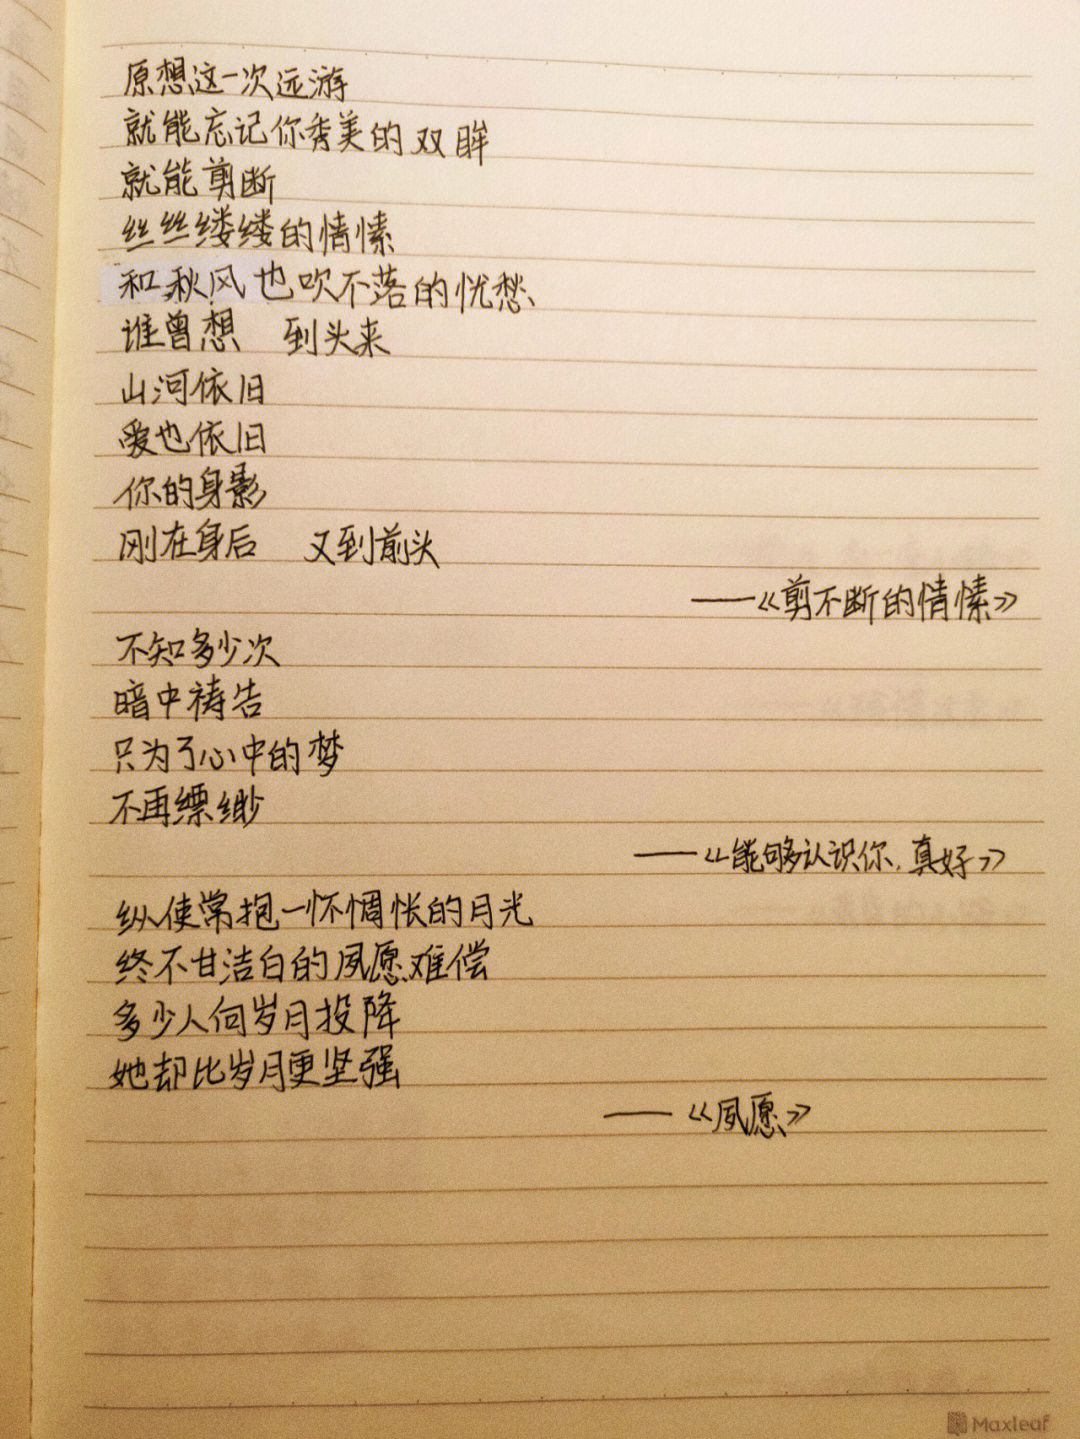 原想这一次远游
就能忘记你秀美的双眸
就能剪断
丝丝缕缕的情愫
和秋风也吹不落的忧愁、
谁曾想 到头来
山河依旧
爱也依旧
你的身影
刚在身后 又到前头
——《剪不断的情愫》
不知多少次
暗中祷告
只为了心中的梦
不再缥缈
——《能够认识你,真好》
纵使常抱一怀惆怅的月光
终不甘洁白的夙愿难偿
多少人向岁月投降
她却比岁月更坚强
——《夙愿》
Maxleaf